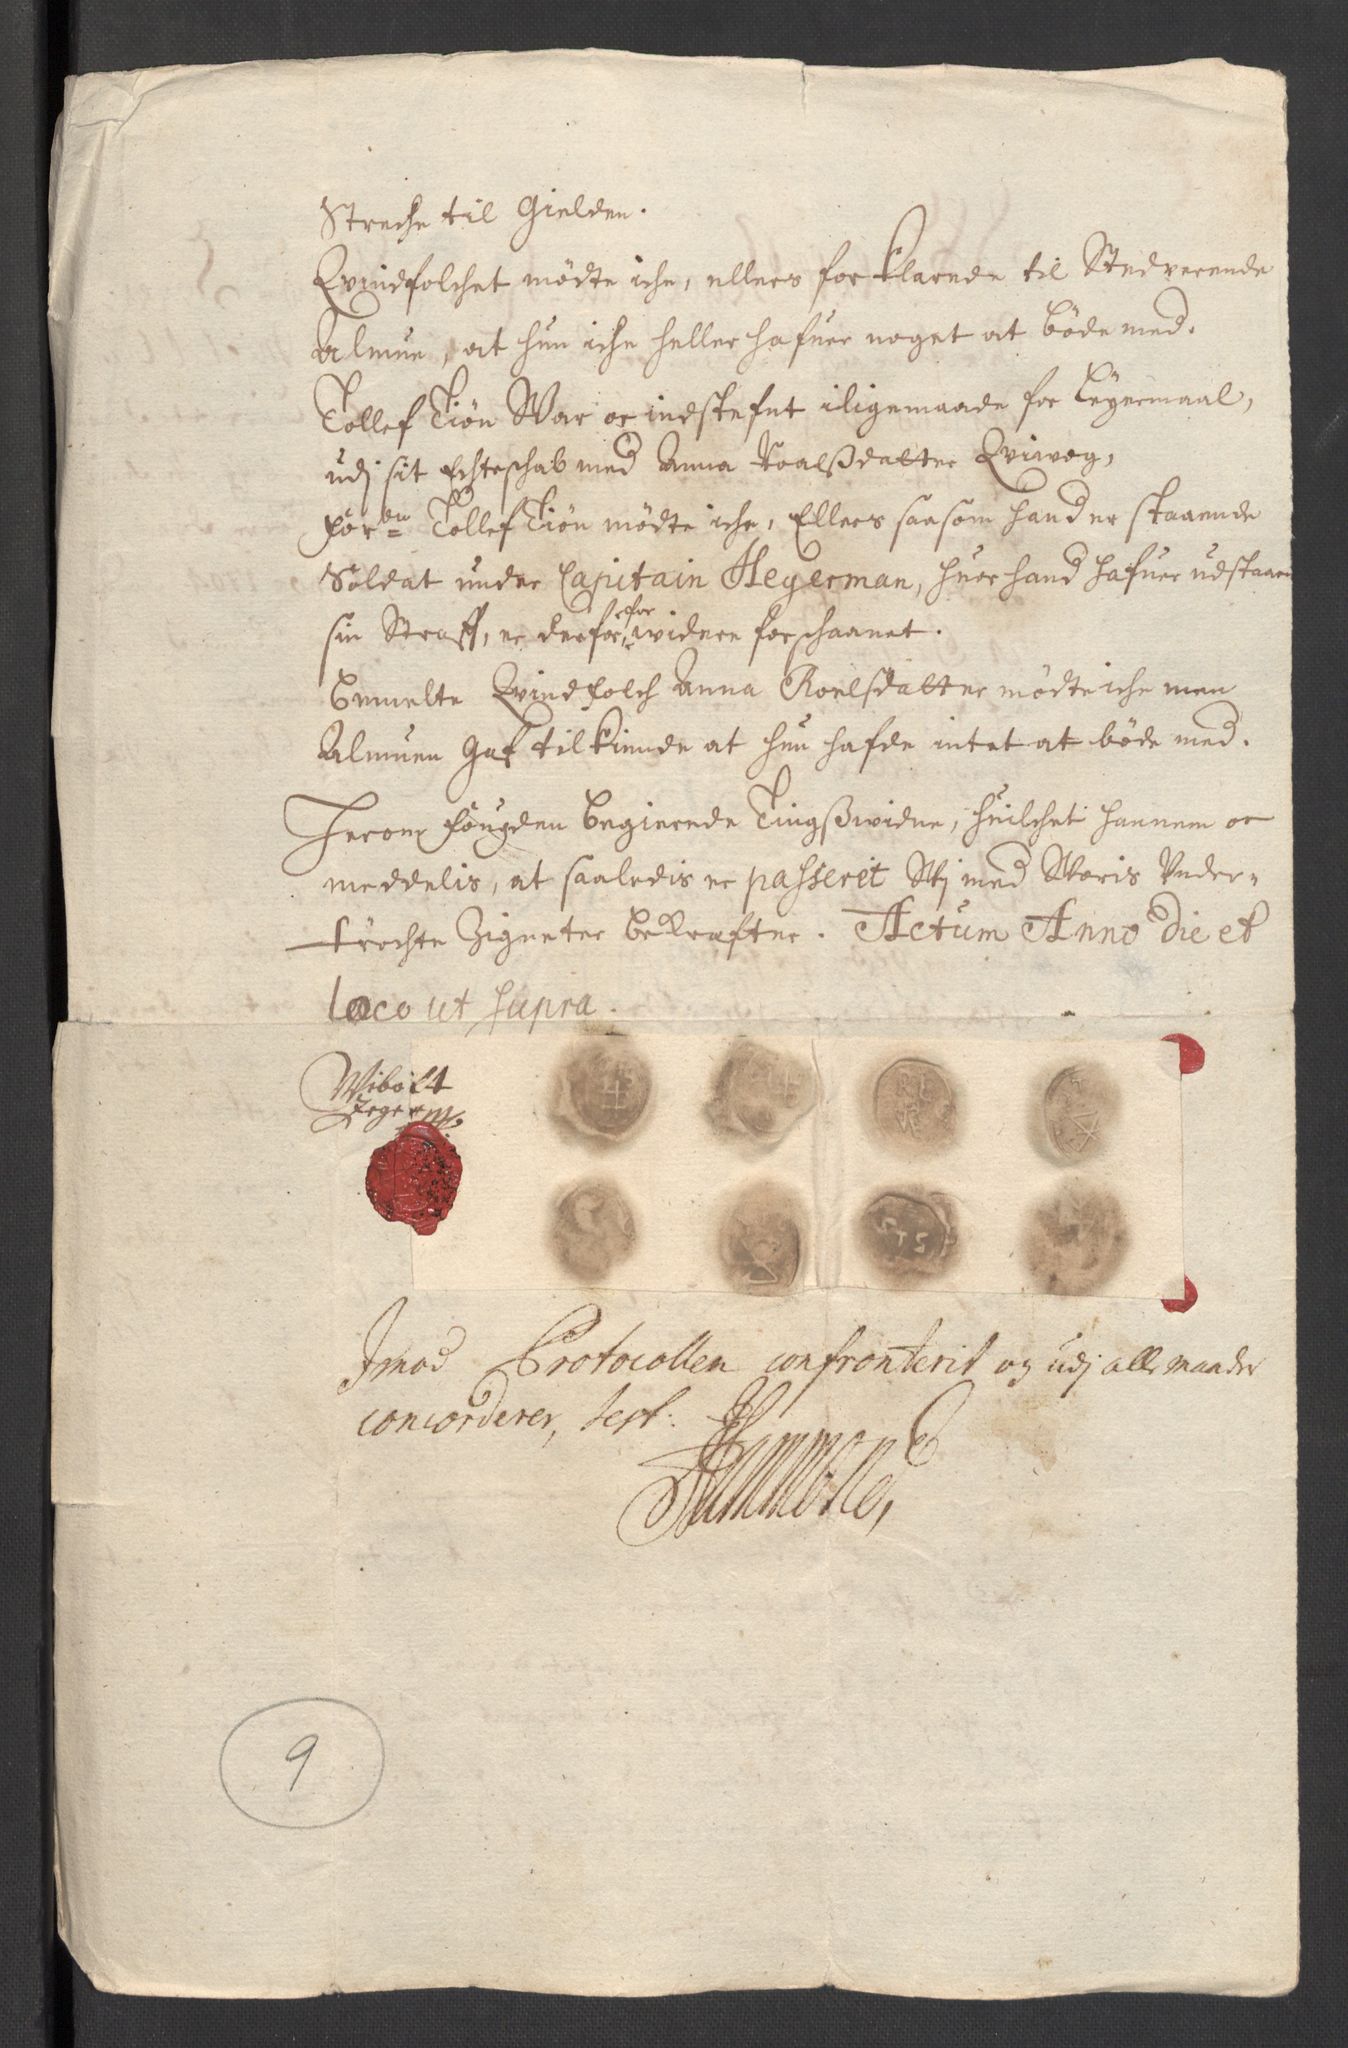 Streche til Gielden.
Qvindfolchet mødte iche, ellers forklarede til Stedverende
Almue, at hun iche heller hafuer noget at bøde med.
Tollef Tiøn War er indstefnt iligemaade for Leyermaal,
udj sit Echteschab med Anna Roalßdatter Qviveg,
for dn Tollef Tiøn mødte iche, Ellers saasom hand er staaende
Soldat under Capitain Hegerman, huor hand hafuer udstaaen
sin Straff, er derfor for widere forschaanet.
Bemelte Qvindfolch Anna Roelsdatter mødte iche men
Almuen Gaf tilkiende at hun hafde intet at bøde med.
Herom fougden Begierede Tingßwidne, huilchet hannem er
meddelis, at saaledis er passerit Wj med Woris Under-
trøchte Zigneter Bekrafter. Actum Anno Die et
loco ut supra.
Wibolt
Jegerm.
RL
TS
Imod Protocollen confronterit og udj alle maader
concorderer, test:
9